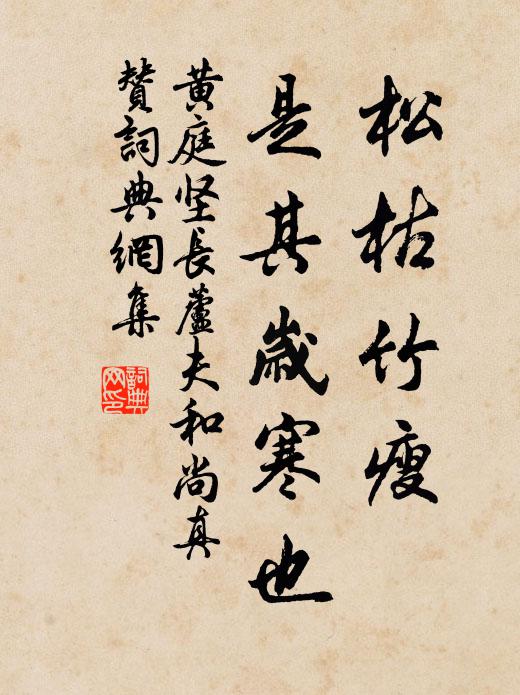 松枯竹瘦
是其歲寒也
黄庭坚長蘆夫和尚真
贊詞典網集
詞典
网印